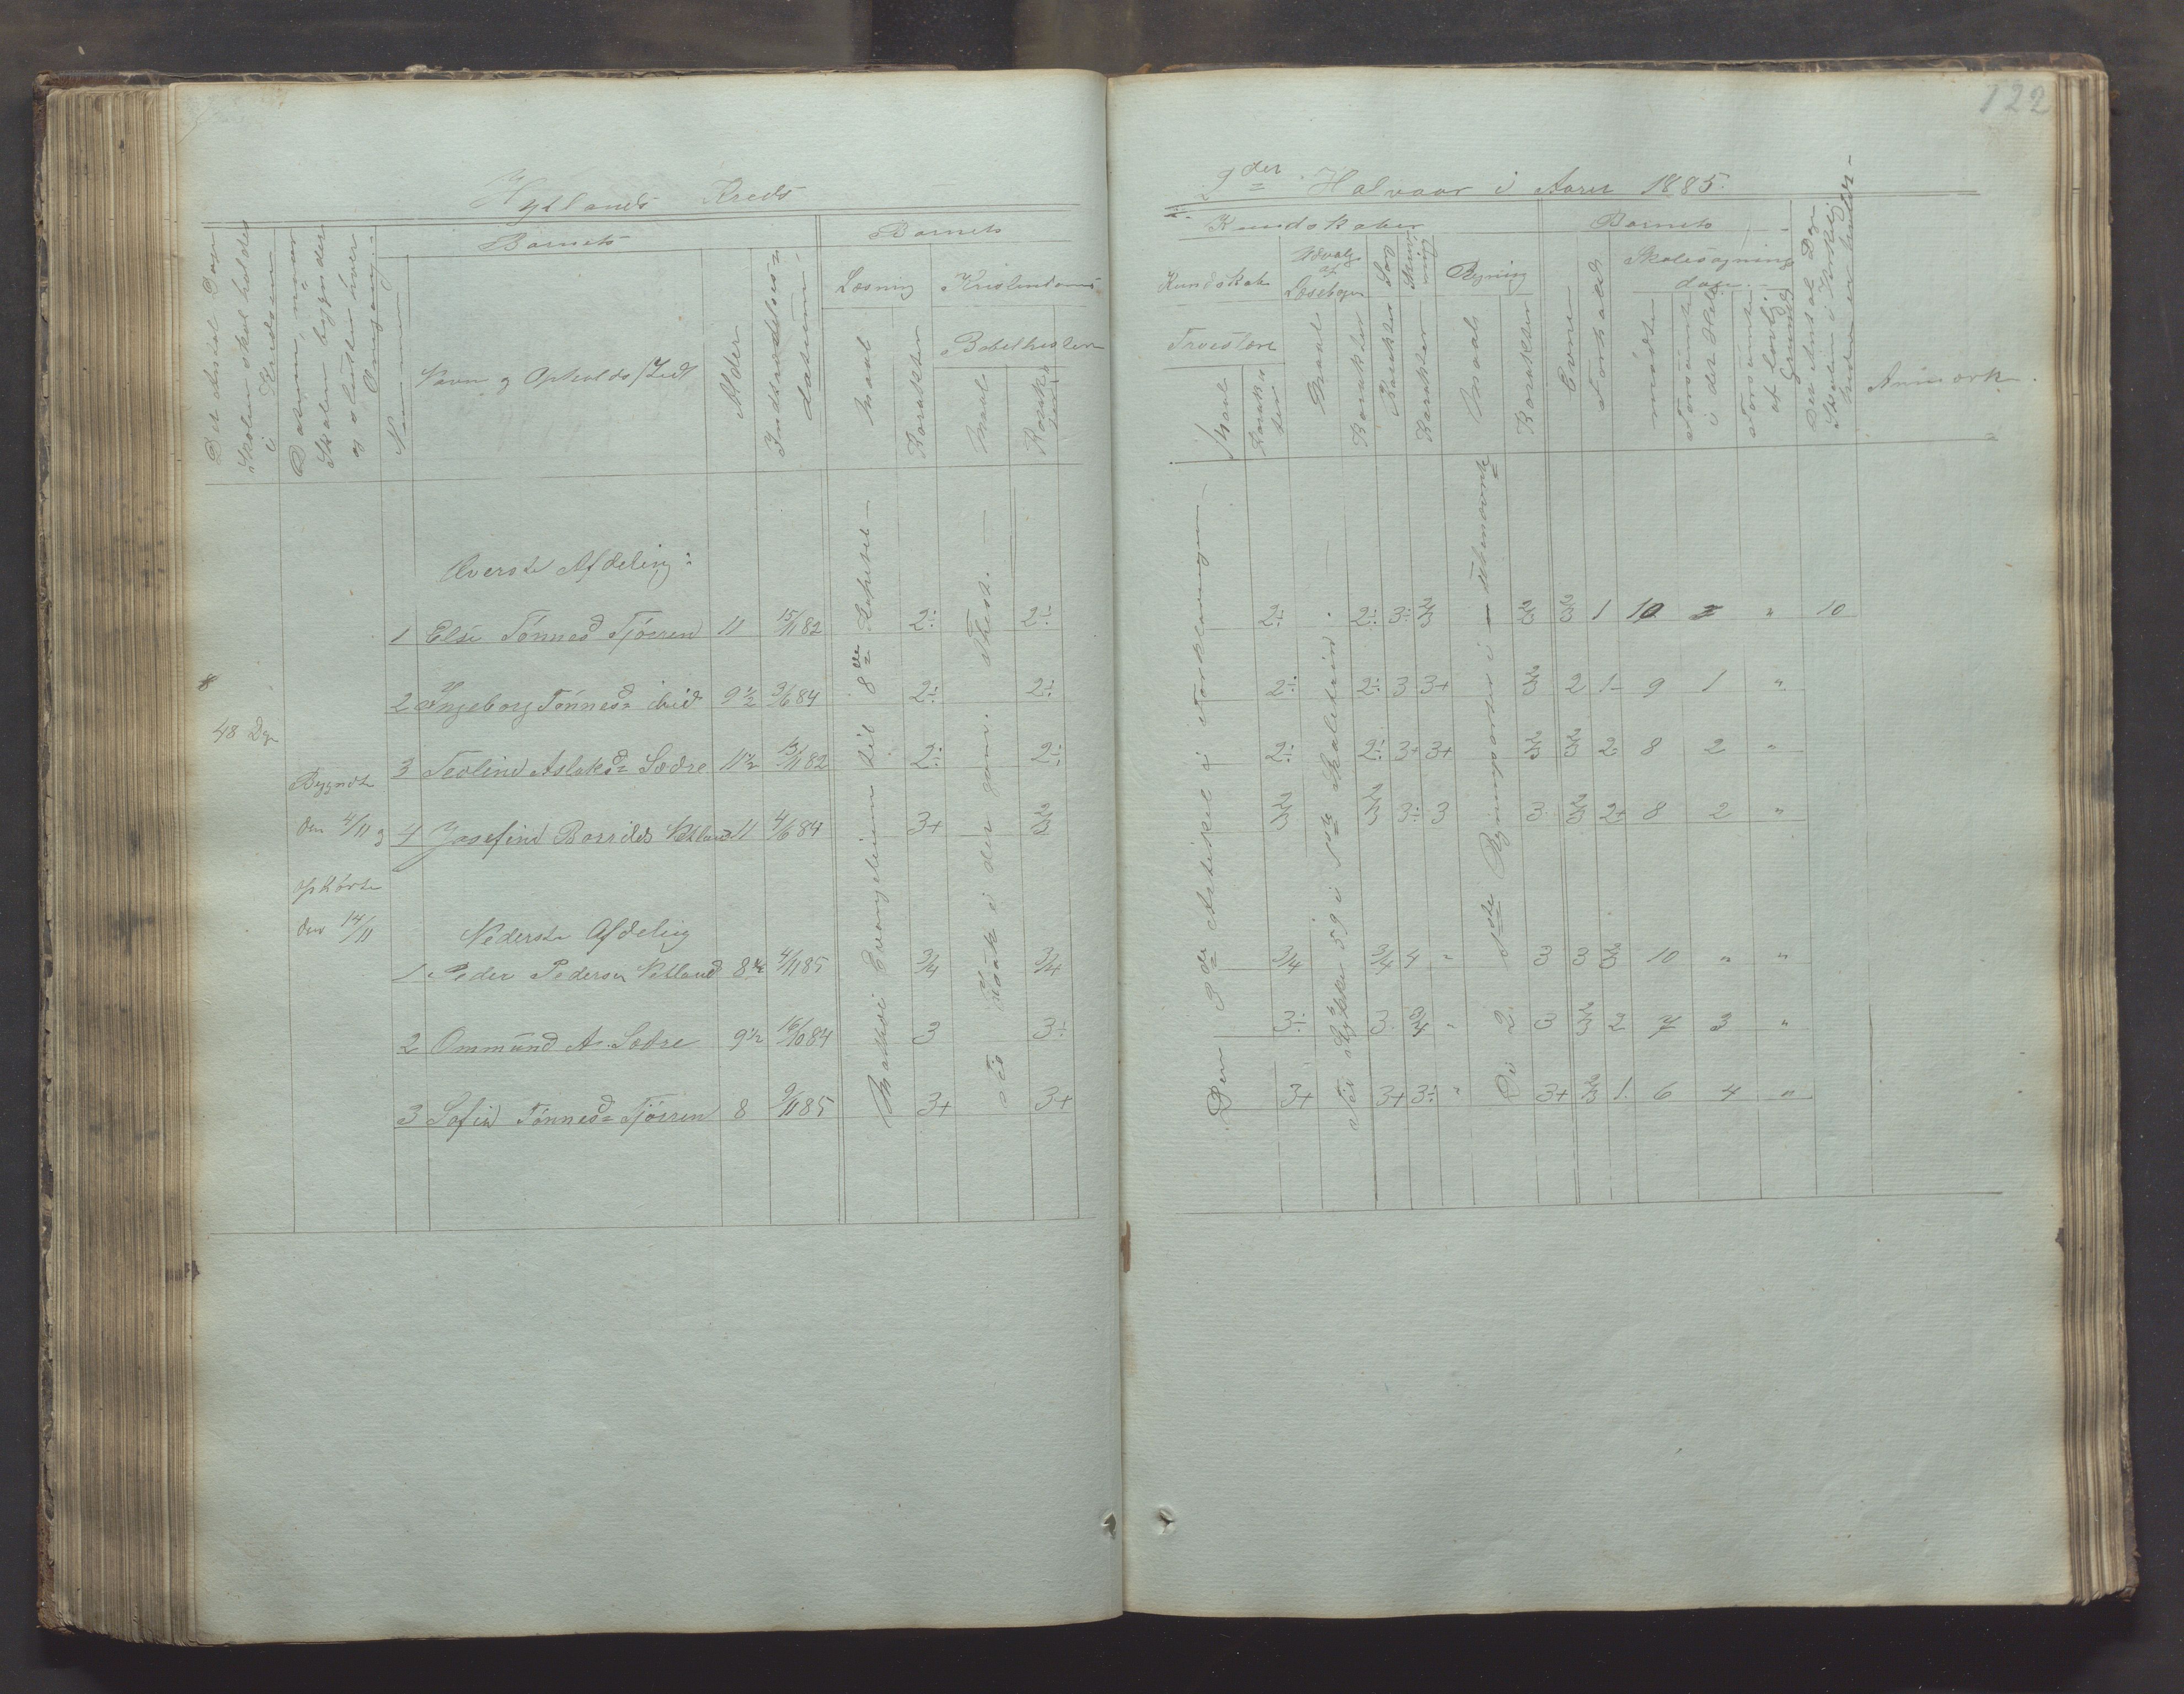 122
Hyllands Kreds
2 det Halvaar i Aaret 1885.
Det Antal Dage Skolen skal holdes i Kredsen
Datum, naar Skolen begynder og slutter hver Omgang.
Barnets
Nummer
Navn og Opholds/Sted
Alder
Indtrædelses= datum.
Barnets
Læsning
Maal
Karakter
Kristendoms
Bibelhistorie
Maal
Karakter
Kundskaber
Kundskab
Troeslære
Maal
Karakter
Udvalg af Læsebogen
Maal
Karakter
Sang
Karakter
Skrivning
Karakter
Regning
Maal
Karakter
Barnets
Evne
Forhold
Skolesøgnings dage.
mødte
forsømte i det Hele
forsømte af lovlig Grund
Det Antal Dage Skolen i Virkeligheden er holdt
Anmærk.
Øverste Afdeling:
1 Elsi Tønnesd Tjörren 11 15/11 82 2÷ 2÷ 2÷ 2÷ 3÷ 2/3 2/3 2/3 1 10 " " 10
2 Ingeborg Tønnesd ibid 9 1/2 3/6 84 2÷ 2÷ 2÷ 2÷ 3 3+ 2/3 2 1÷ 9 1 "
48 Dge
3 Teoline Aslaksd Lædre 11 1/2 13/11 82 2÷ 2÷ 2÷ 2÷ 3+ 3+ 2/3 2/3 2 8 2 "
Begyndte
den 4/11 og
4 Josefine Bårdsd Netland 11 4/6 84 3+ 2/3 2/3 2/3 3÷ 3 3 2/3 2+ 8 2 "
ophørte
den 14/11
Nederste Afdeling
1 Peder Pedersen Netland 8 1/2 4/11 85 3/4 3/4 3/4 3/4 4 " 3 3 2/3 10 " "
2 Ommund A. Lædre 9 1/2 16/10 84 3 3÷ 3÷ 3 3/4 " 3 2/3 2 7 3 "
3 Sofie Tønnesd Tjörren 8 9/11 85 3+ 3+ 3+ 3+ 3÷ " 3+ 2/3 1 6 4 "
Matthæi Evangelium til 8de Kapitel
Til Isak i det gamle Test.
Den 3die Artikel i Forklaringen
Til Stykke 59 i 1ste Skoletrin
De 2 første Regningsarter i